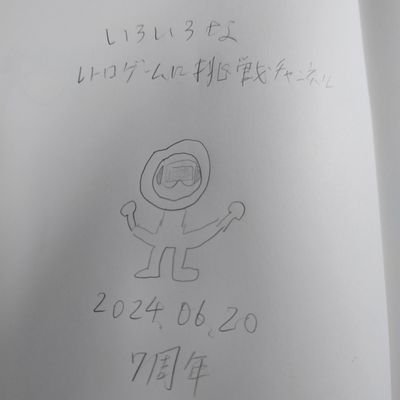 いろいろな
レトロゲームに挑戦チャンネル
2024.06.20
7周年